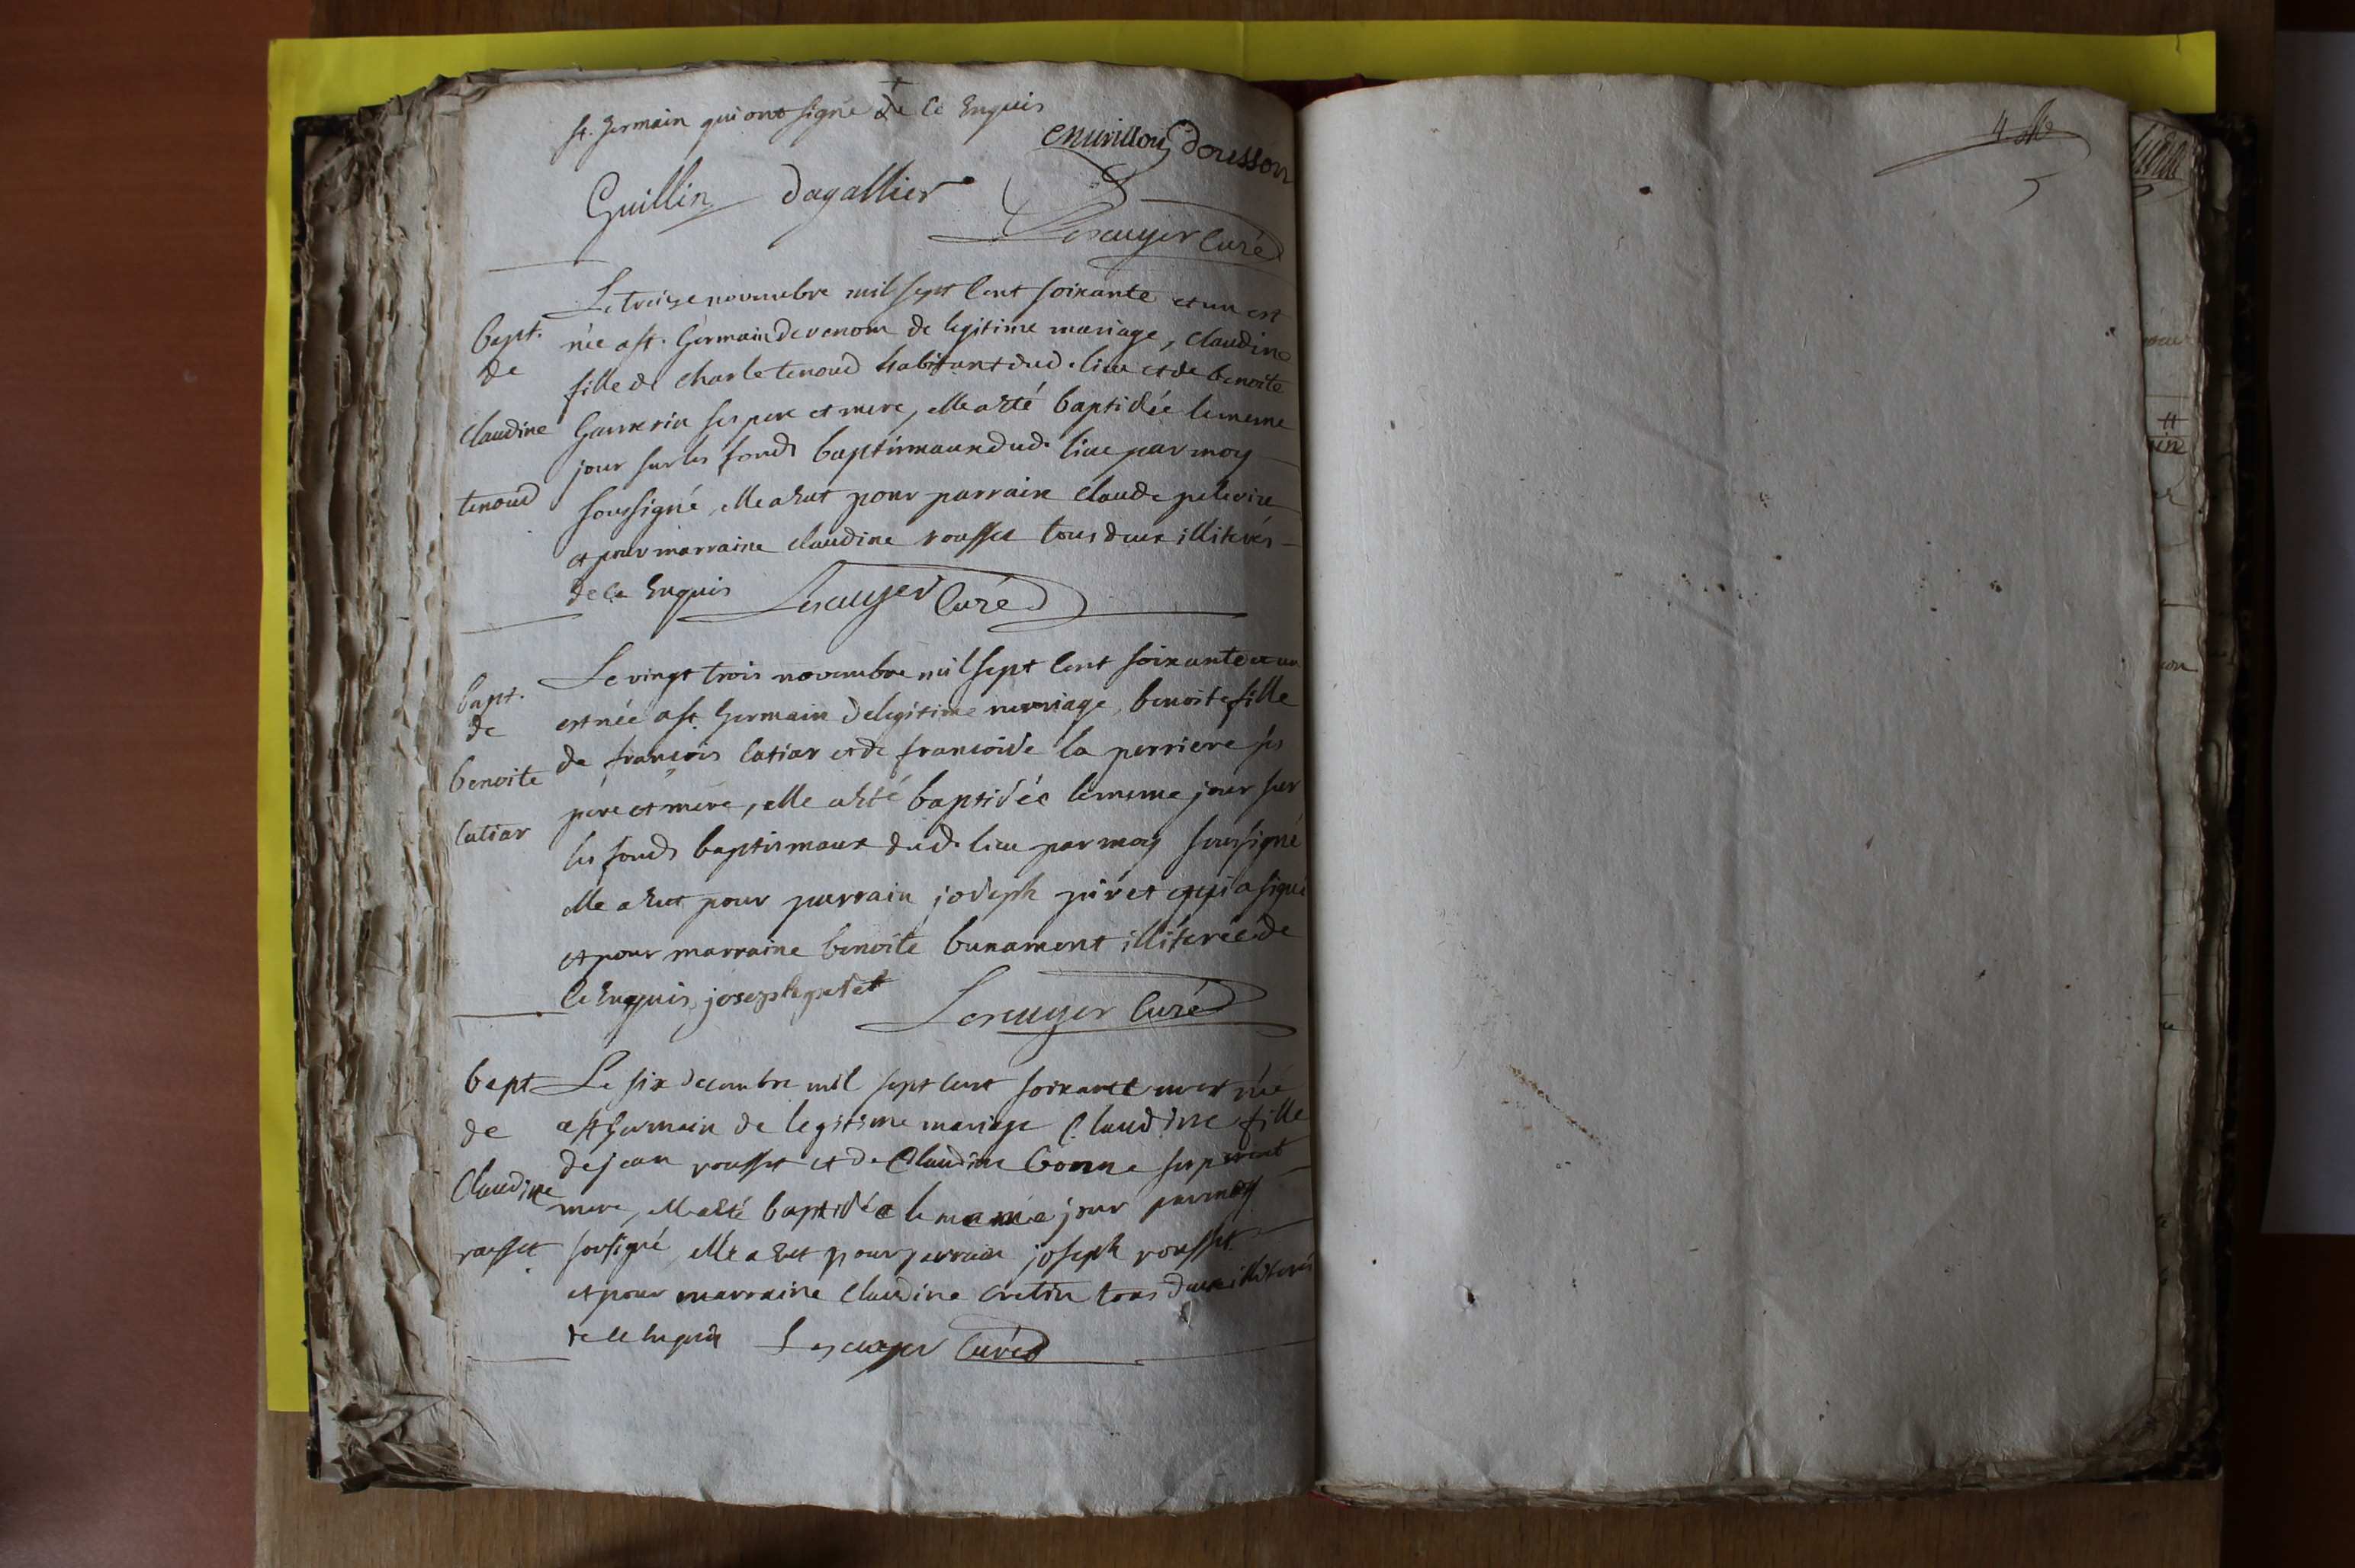 st. Germain qui ont signé de ce Enquis
Dousson
Guillin Dagallier
Lescuyer Curé
Le treize novembre mil sept Cent soixante et un est
Bapt. née a st. Germain de renom de legitime mariage, Claudine
de fille de Charle tenoud habitant dud. lieu et de benoite
Claudine ses pere et mere, elle a Eté baptisée le meme
jour sur les fonds baptismaux dud. lieu par moy
tenoud soussigné, elle a Eut pour parrain Claude pelerin
et pour marraine Claudine rousset tous deux illiterés
de ce Enquis Lescuyer Curé
Le vingt trois novembre mil sept Cent soixante et un
bapt. est née a st. Germain de legitime mariage, benoite fille
de de françois Catiar et de francoise la perriere ses
benoite pere et mere, elle a Eté baptisée le meme jour sur
Catiar les fonds baptismaux dud. lieu par moy soussigné
elle a Eut pour parrain joseph piret qui a signé
et pour marraine benoite bunament illiterée de
ce Enquis joseph Lescuyer Curé
bapt Le six decembre mil sept Cent soixante un est née
de a st Germain de legitime mariage Claudine fille
de jean rousset et de Claudine bonne ses pere et
Claudine mere, elle a Eté baptisée le meme jour par moy
rousset soussigné, elle a Eut pour parrain joseph rousset
et pour marraine Claudine Cretin tous deux illiterés
de ce Enquis Lescuyer Curé